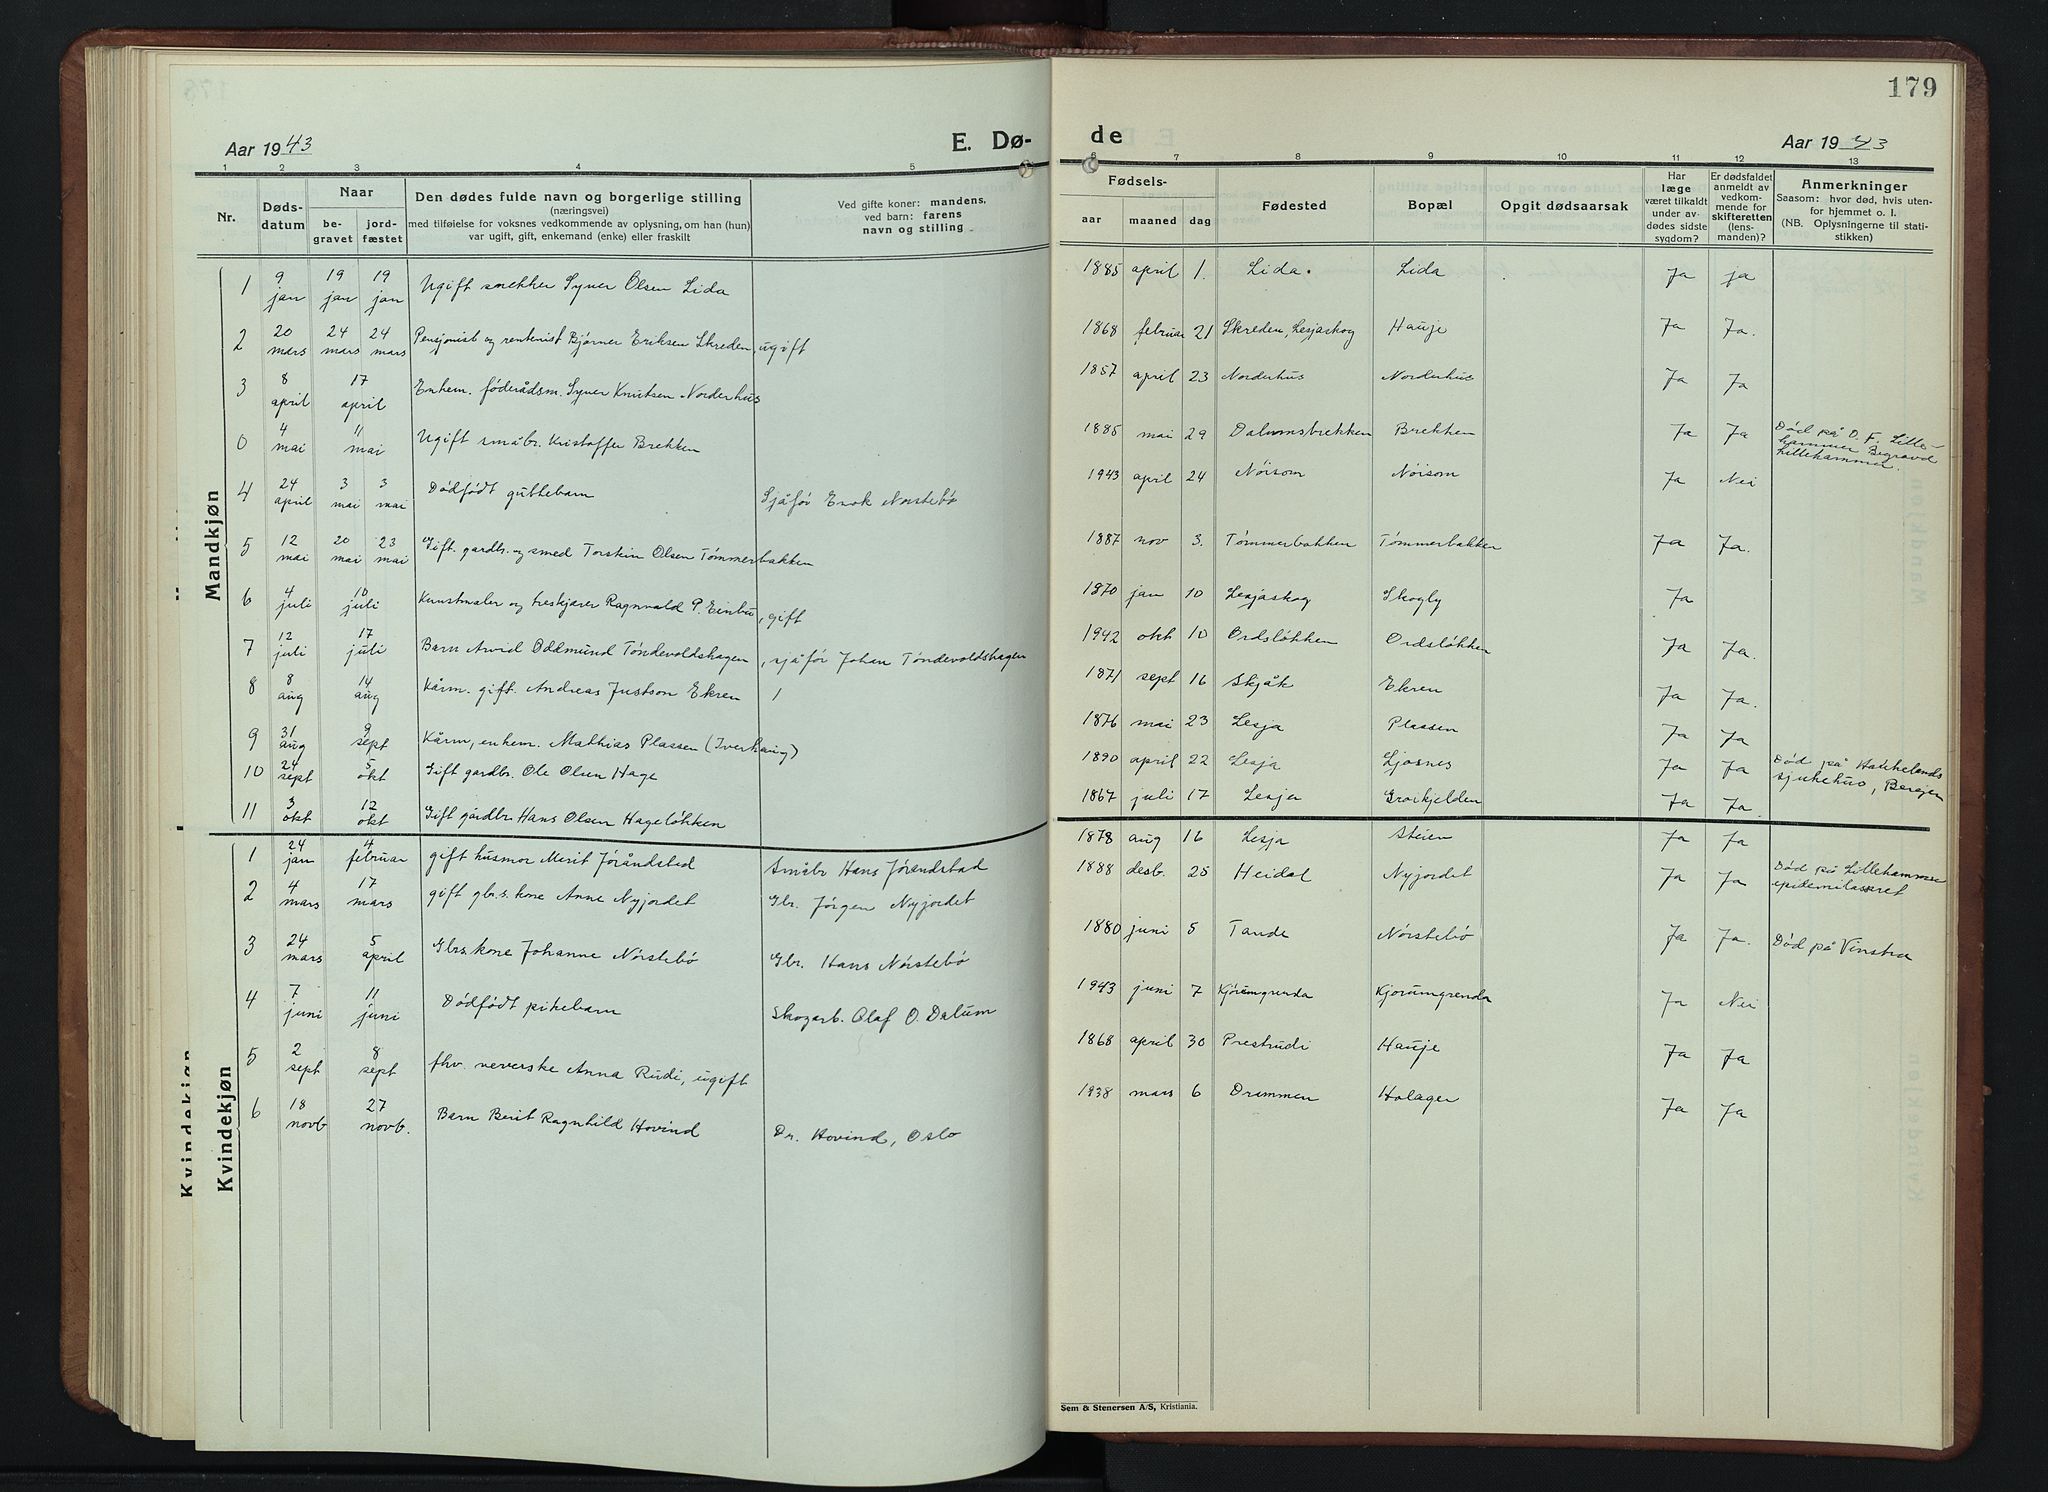 179
Aar 1943
E. Dø-
de
Aar 1943
1 2 3 4 5 6 7 8 9 10 11 12 13
Nr.
Døds-
datum
Naar
be-
gravet
jord-
fæstet
Den dødes fulde navn og borgerlige stilling
(næringsvei)
med tilføielse for voksnes vedkommende av oplysning, om han (hun)
var ugift, gift, enkemand (enke) eller fraskilt
Ved gifte koner: mandens,
ved barn: farens
navn og stilling
Fødsels-
aar maaned dag
Fødested
Bopæl
Opgit dødsaarsak
Har
læge
været tilkaldt
under av-
dødes sidste
sygdom?
Er dødsfaldet
anmeldt av
vedkom-
mende for
skifteretten
(lens-
manden)?
Anmerkninger
Saasom: hvor død, hvis uten-
for hjemmet o. l.
(NB. Oplysningerne til stati-
stikken)
Mandkjøn
1 9 jan 19 jan 19 jan Ugift snekker Syver Olsen Lida 1885 april 1. Lida. Lida Ja ja
2 20 mars 24 mars 24 mars Pensjonist og rentenist Bjørner Eriksen Skreden, ugift 1868 februar 21 Skreden, Lesjaskog Hauje Ja Ja.
3 8 april 17 april Enkem. föderådsm. Syver Knutsen Norderhus 1857 april 23 Norderhus Norderhus Ja Ja
0 4 mai 11 mai Ugift småbr. Kristoffer Brekken 1885 mai 29 Dalumsbrekken Brekken Ja Ja Død på O. F. Lille-
hammer Begravd
Lillehammer.
4 24 april 3 mai 3 mai Dødfödt guttebarn Sjåför Enok Norstebö 1943 april 24 Nöisom Nöisom Ja Nei
5 12 mai 20 mai 23 mai Gift. gardbr. og smed Torstein Olsen Tömmerbakken 1887 nov 3. Tömmerbakken Tömmerbakken Ja Ja.
6 4 juli 10 juli Kunstmaler og treskjærer Ragnvald P. Einbu, gift 1870 jan 10 Lesjaskog Skogly Ja
7 12 juli 17 juli Barn Arvid Oddmund Töndevoldshagen, sjåför Johan Töndevoldshagen 1942 okt 10 Ordslökken Ordslökken Ja Ja.
8 8 aug 14 aug Kårm. gift. Andreas Justson Ekren 1871 sept 16 Skjåk Ekren Ja Ja.
9 31 aug 9 sept Kårm, enkem. Mathias Plassen (Iverhaug) 1876 mai 23 Lesja Plassen Ja Ja
10 24 sept 5 okt Gift gardbr. Ole Olsen Hage 1890 april 22 Lesja Ljosnes Ja Ja Död på Haukelands
sjukehus, Bergen
11 3 okt 12 okt Gift gårdbr. Hans Olsen Hagelökken 1867 juli 17 Lesja Groikjelden Ja Ja.
Kvindekjøn
1 24 jan 4 februar gift husmor Merit Jöråndstad Småbr Hans Jörandstad 1878 aug 16 Lesja Steien Ja Ja
2 4 mars 17 mars gift gbr.s. kone Anne Nyjordet Gbr. Jörgen Nyjordet 1888 desb. 25 Heidal Nyjordet Ja Ja Död på Lillehammer
epidemilasaret
3 24 mars 5 april Gbrs. kone Johanne Nörstebö Gbr. Hans Nörstebö 1880 juni 5 Tande Nörstebö Ja Ja. Død på Vinstra
4 7 juni 11 juni Dödfödt pikebarn Skogarb. Olaf O. Dalum 1943 juni 7 Kjörumgrenda Kjörumgrenda Ja Nei
5 2 sept 8 sept fhv. veverske Anna Rudi, ugift 1868 april 30 Prestrudi Hauje Ja Ja
6 18 novb 27 novb. Barn Berit Ragnhild Hovind Dr. Hovind, Oslo 1938 mars 6 Drammen Holager Ja Ja
Kvindekjøn
Sem & Stenersen A/S, Kristiania.